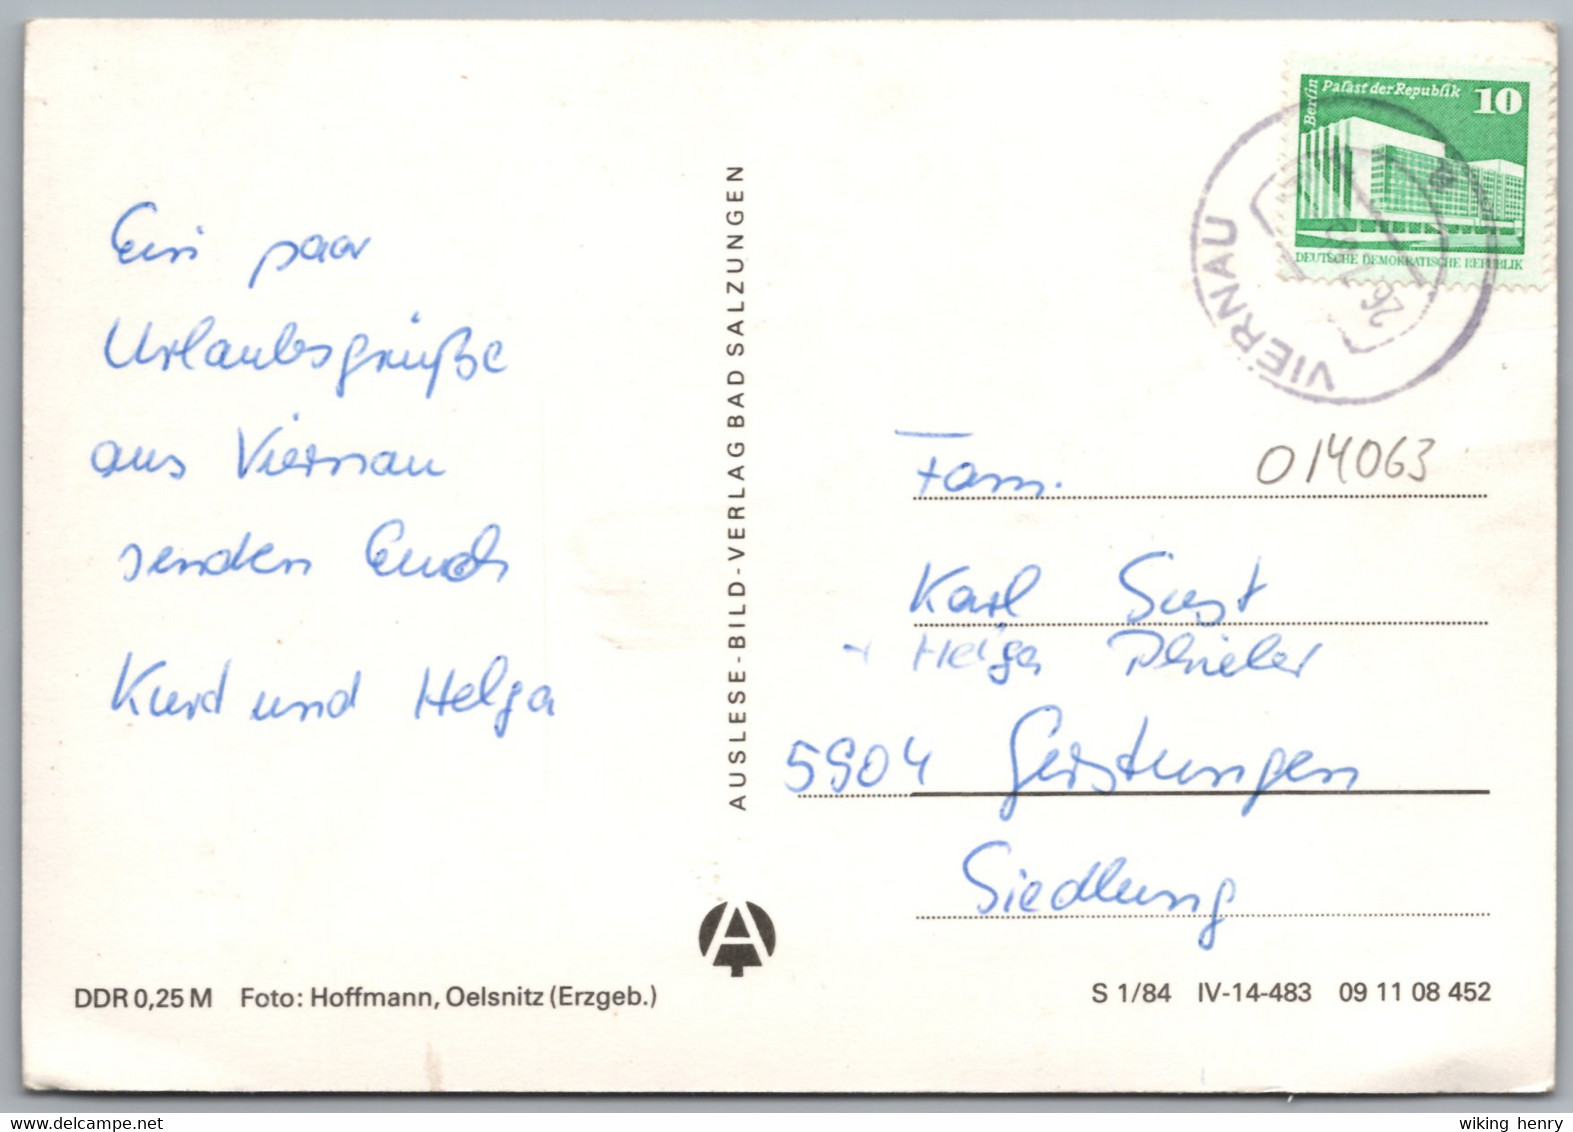 Ein paar
Urlaubsgrüße
aus Viernau
senden Euch
Kurt und Helga
DDR 0,25 M Foto: Hoffmann, Oelsnitz (Erzgeb.)
AUSLESE-BILD-VERLAG BAD SALZUNGEN
Berlin
Palast der Republik 10
DEUTSCHE DEMOKRATISCHE REPUBLIK
VIERNAU
26.7.
014063
Fam.
Karl Sust
+ Helga
5904 Gerstungen
Siedlung
S 1/84 IV-14-483 09 11 08 452
wiking henry